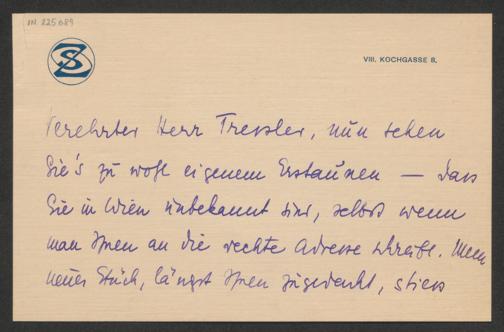 IN 225689
SZ
VIII. KOCHGASSE 8.
Verehrter Herr Tressler, nun sehen
Sie's zu wohl eigenem Erstaunen — dass
Sie in Wien unbekannt sind, selbst wenn
man Ihnen an die rechte Adresse schreibt. Mein
neues Stück, längst Ihnen zugedacht, stiess